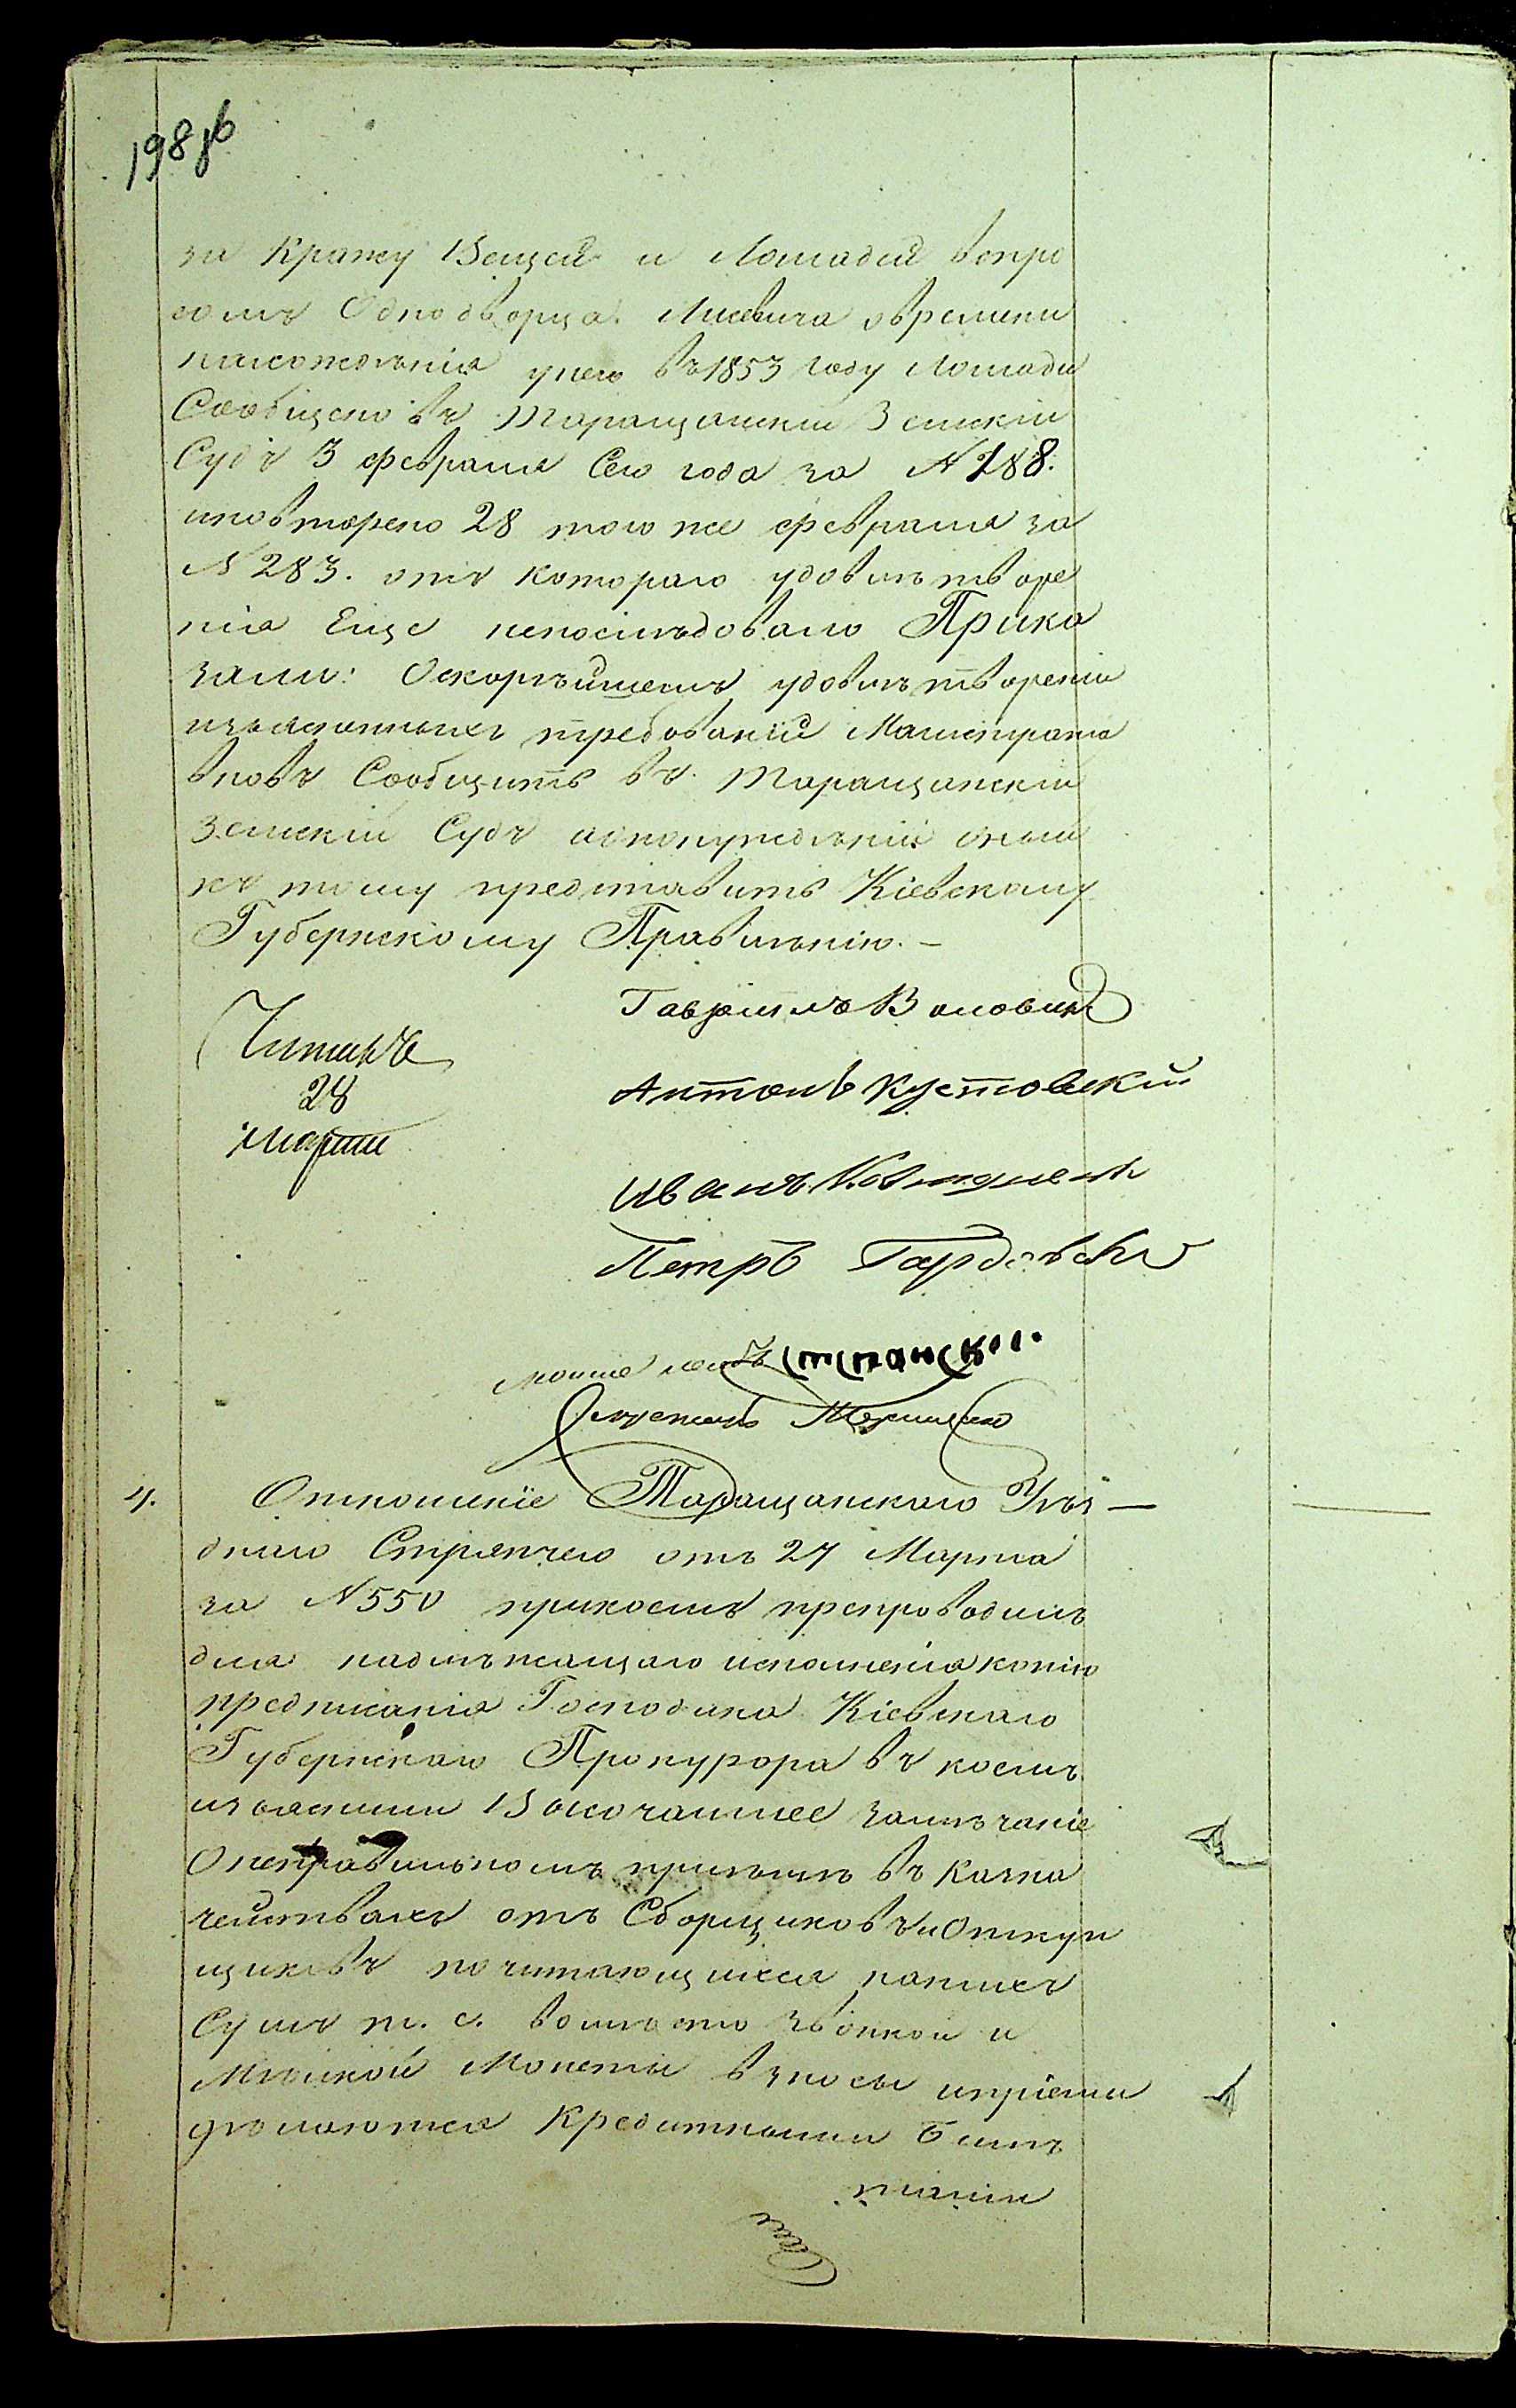 198 об
за Кражу Вещей и Лошадей вопро
сомъ Однодворца Лисевича овремени
нахожденія унего въ 1853 году Лошади
Сообщено въ Таращанскій Земскій
Судъ 3 февраля Сего года за N 188.
иповторено 28 того же февраля за
N 283. отъ котораго удовлѣтворе
нія Еще непослѣдовало Прика
зали: Оскорѣйшемъ удовлѣтвореніи
изъясненныхъ требованій Магистрата
вновъ Сообщить въ Таращанскій
Земскій Судъ аопонужденіи оный
къ тому представить Кіевскому
Губернскому Правлѣнію. —
Гавріилъ
Читалъ
28
Марта
Антонъ Кустовскій
Иванъ
Петръ
Степанскій
4.
Отношеніе Таращанскаго Уѣз—
днаго Стряпчего отъ 27 Марта
за N 550 прикоемъ препроводилъ
для надлѣжащаго исполненія копію
предписанія Господина Кіевскаго
Губернскаго Прокурора въ коемъ
изъяснили Высочайшее замѣчаніе
Онеправильномъ пріѣмѣ въ Казна
чействахъ отъ Сборщиковъ и Откуп
щиковъ почитающихся напихъ
Сумъ т. е. вомѣсто звонкой и
Мѣлкой Монеты взносы ипріемы
дѣлаются Кредитными Билѣ
тами